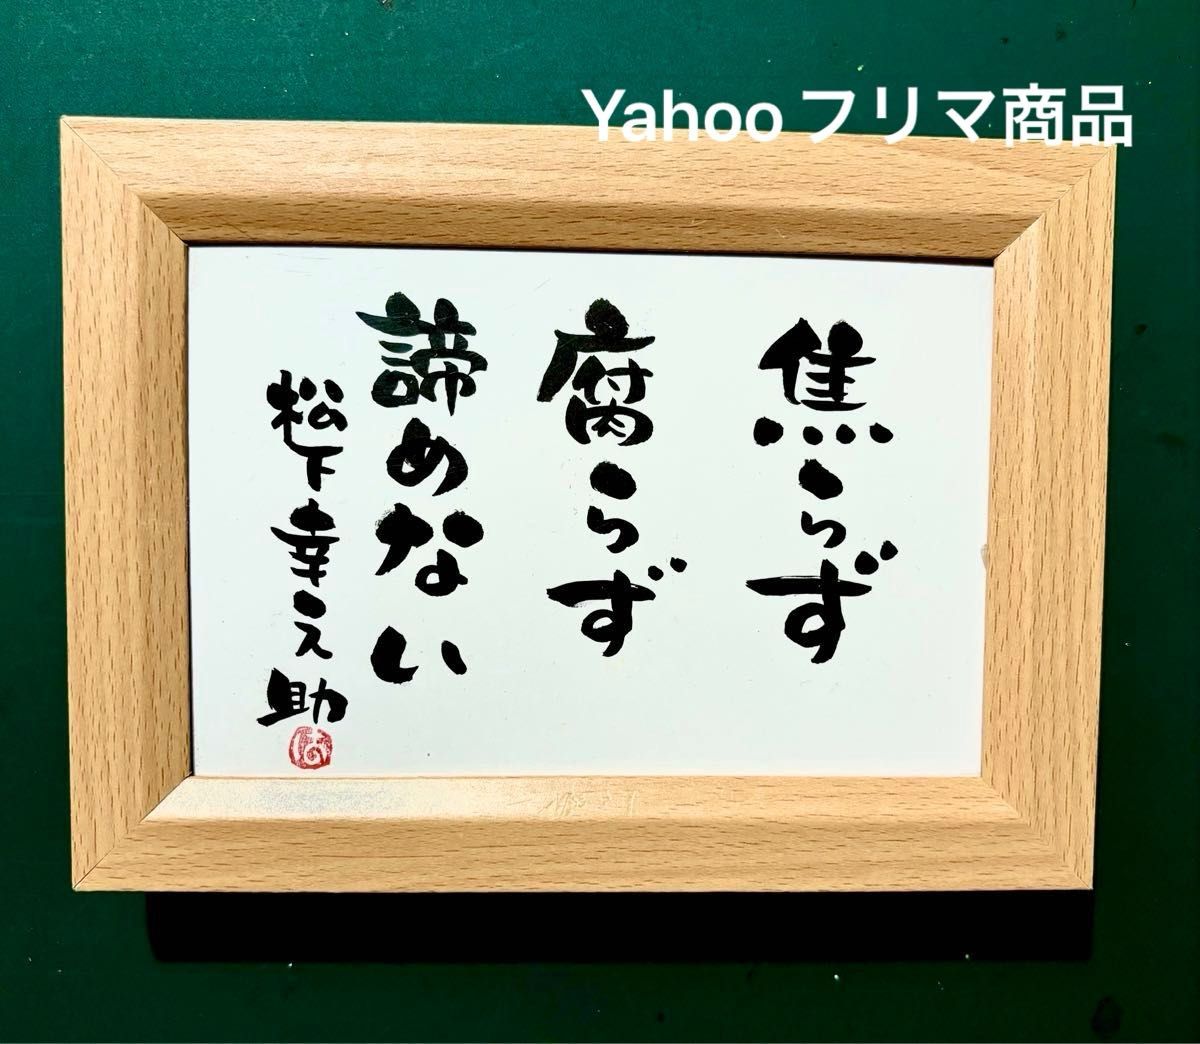 Yahooフリマ商品
焦らず
腐らず
諦めない
松下幸之助